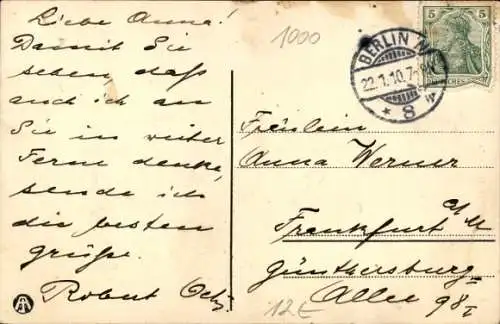 Liebe Anna!
Damit Sie
sehen daß
auch ich an
Sie in weiter
Ferne denke,
sende ich
die besten
grüße.
Robert
1000
BERLIN N.
22.1.10.7-8N.
* 8
5 5
Fräulein
Anna Werner
Frankfurt a/M
Günthersburg
Allee 98 I
12€